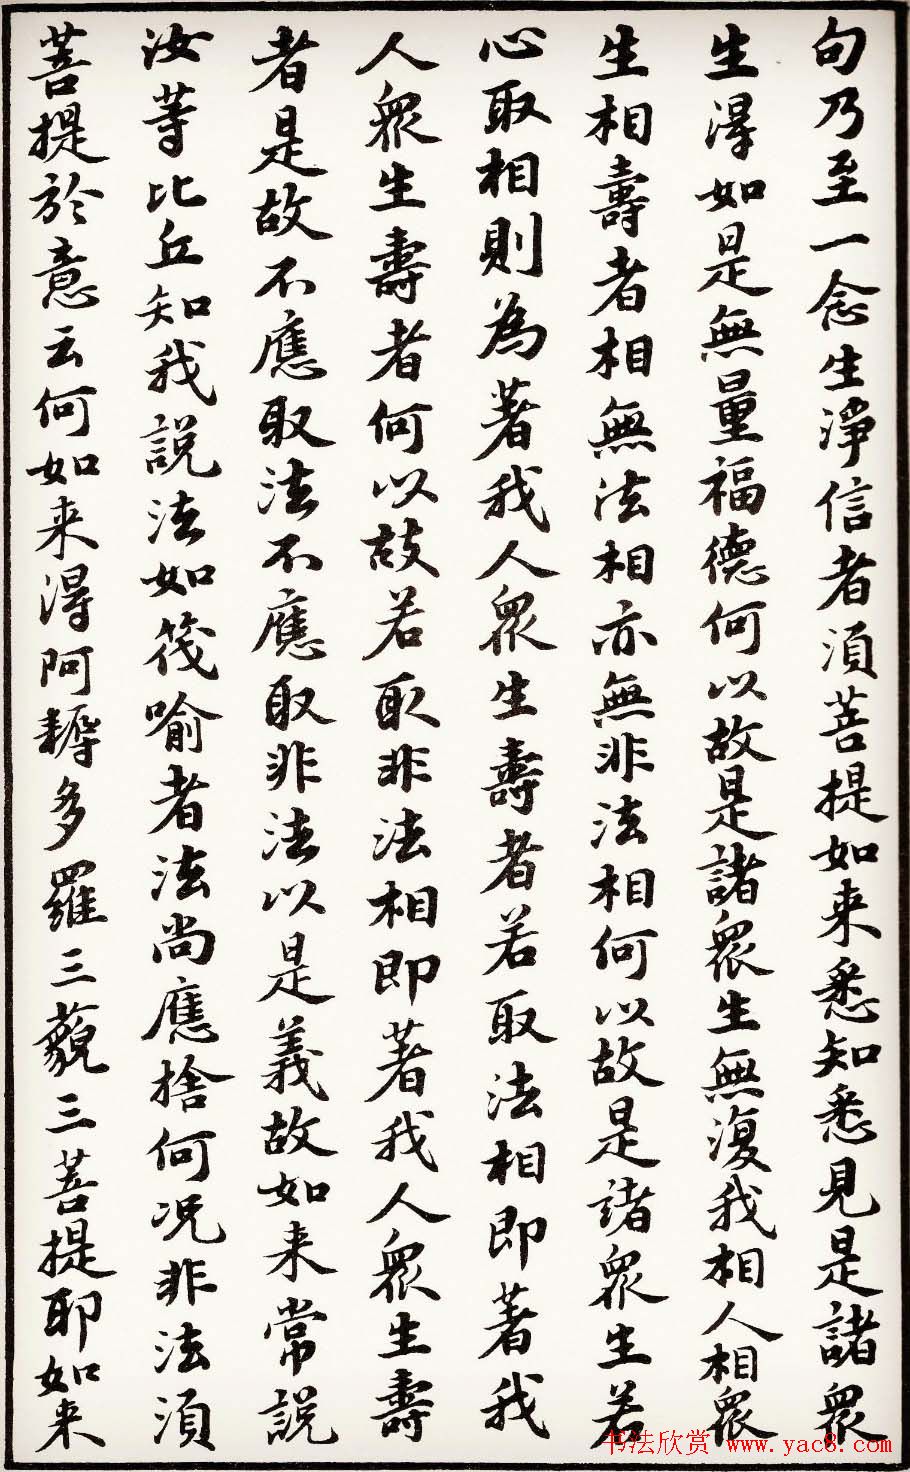 句乃至一念生淨信者須菩提如来悉知悉見是諸眾
生淂如是無量福德何以故是諸眾生無復我相人相眾
生相壽者相無法相亦無非法相何以故是諸眾生若
心取相則為著我人眾生壽者若取法相即著我
人眾生壽者何以故若取非法相即著我人眾生壽
者是故不應取法不應取非法以是義故如来常説
汝等比丘知我説法如筏喻者法尚應捨何况非法須
菩提於意云何如来淂阿耨多羅三藐三菩提耶如来
书法欣赏 www.yac8.com